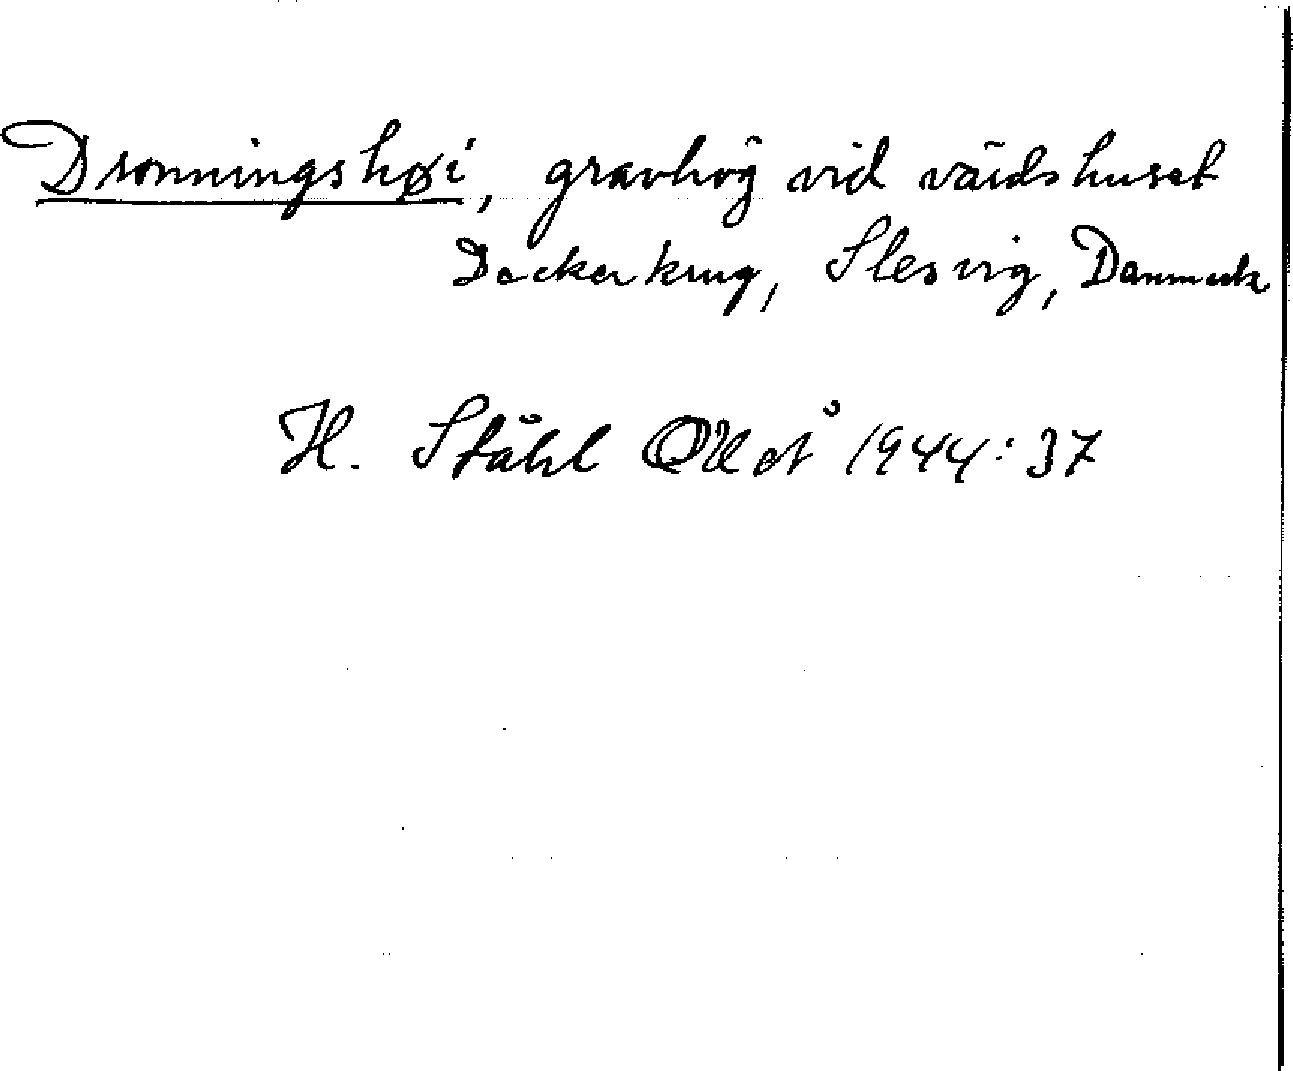 Dronningshøi, gravhög vid värdshuset
Dockerkrug, Slesvig, Danmark
H. Ståhl 1944:37